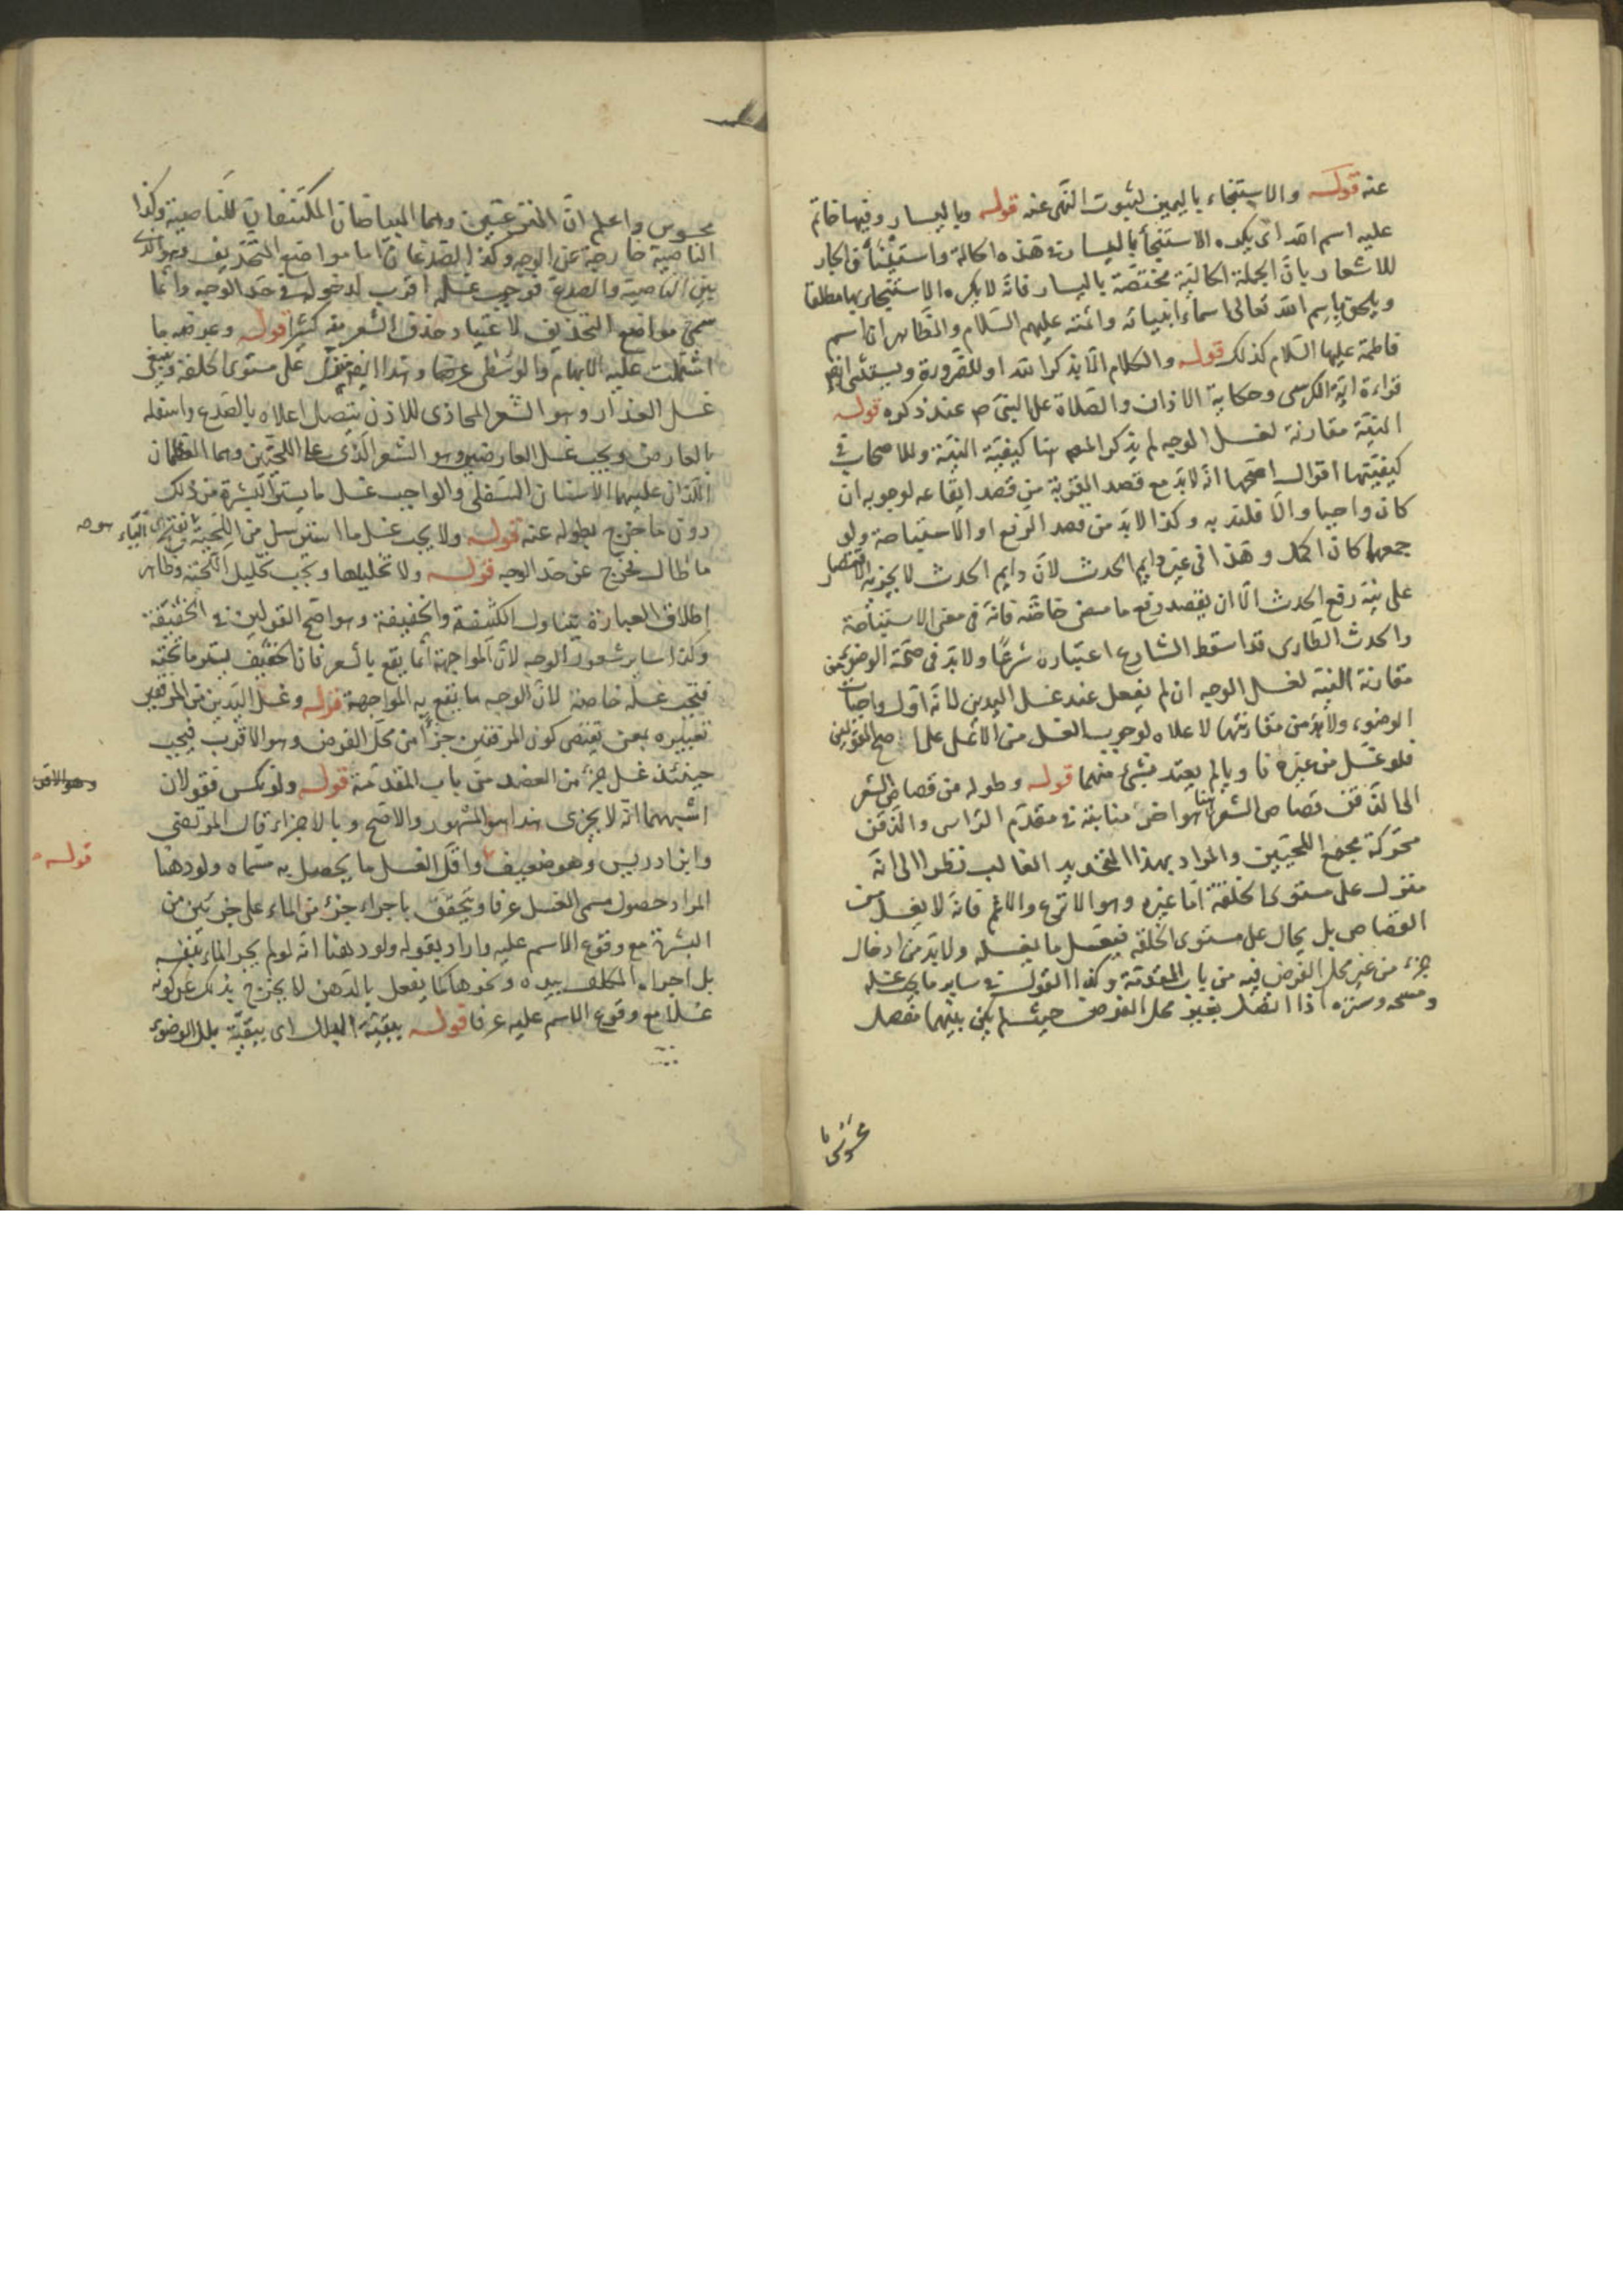 عنه قوله والاستنجاء باليمين لثبوت النهى عنه قوله وباليسار وفيها خاتم
عليه اسم الله اى يكره الاستنجاء باليسار فى هذه الحالة
للاشعار بان الجملة الحالية مختصة باليسار فانه لا يكره الاستنجاء بها مطلقا
ويلحق باسم الله تعالى اسماء انبيائه وائمته عليهم السلام والظاهر ان اسم
فاطمة عليها السلام كذلك قوله والكلام الا بذكر الله او للضرورة ويستثنى ايضا
قراءة آية الكرسى وحكاية الاذان والصلاة على النبى ص عند ذكره قوله
النية مقارنة لغسل الوجه لم يذكر المصم هنا كيفية النية وللاصحاب فى
كيفيتها اقوال اصحها انه لابد مع قصد القربة من قصد ايقاعه لوجوبه ان
كان واجبا والا فلندبه وكذا لابد من قصد الرفع او الاستباحة ولو
جمعهما كان اكمل وهذا فى غير دايم الحدث لان دايم الحدث لا يجزيه الاقتصار
على نية رفع الحدث الا ان يقصد رفع ما مضى خاصة فانه فى معنى الاستباحة
والحدث الطارى قد اسقط الشارع اعتباره شرعا ولابد فى صحة الوضوء من
مقارنة النية لغسل الوجه ان لم يفعل عند غسل اليدين لانه اول واجبات
الوضوء ولابد من مقارنتها لاعلاه لوجوب الغسل من الاعلى على اصح القولين
فلو غسل من غيره ناويا لم يعتد بشىء منهما قوله وطوله من قصاص الشعر
الى الذقن قصاص الشعر هنا هو اخر منابته فى مقدم الراس والذقن
محركة مجمع اللحيين والمراد بهذا التحديد الغالب نظرا الى انه
منزل على مستوى الخلقة اما غيره وهو الانزع والاغم فانه لا يغسل من
القصاص بل يحال على مستوى الخلقة فيغسل ما يغسله ولابد من ادخال
جزء من غير محل الفرض فيه من باب المقدمة وكذا القول فى ساير ما يجب غسله
ومسحه وستره اذا اتصل بغير محل الفرض حيث لم يكن بينهما مفصل
محسوس
محسوس واعلم ان النزعتين وهما البياضان المكتنفان للناصية وكذا
الناصية خارجة عن الوجه وكذا الصدغان اما مواضع التحذيف وهو الذى
بين الناصية والصدغ فوجوب غسله اقرب لدخوله فى حد الوجه وانما
سمى مواضع التحذيف لاعتياد حذف الشعر منه كثيرا قوله وعرضه ما
اشتملت عليه الابهام والوسطى عرضا وهذا ايضا على مستوى الخلقة
غسل العذار وهو الشعر المحاذى للاذن يتصل اعلاه بالصدغ واسفله
بالعارض ويجب غسل العارضين وهو الشعر الذى على اللحيين وهما العظمان
اللذان عليهما الاسنان السفلى والواجب غسل ما يستر البشرة من ذلك
دون ما خرج بطوله عنه قوله ولا يجب غسل ما استرسل من اللحية
ما طال بخرج عن حد الوجه قوله ولا تخليلها ويجب تخليل اللحية وظاهر
اطلاق العبارة يتناول الكثيفة والخفيفة وهو اصح القولين فى الخفيفة
وكذا ساير شعور الوجه لان المواجهة انما يقع بالشعر فان الخفيف يستر ما تحته
فيجب غسله خاصة لان الوجه ما يقع به المواجهة قوله وغسل اليدين من المرفقين
تعبيره بمن يقتضى كون المرفقين جزءا من محل الفرض وهو الاقرب فيجب
حينئذ غسل جزء من العضد من باب المقدمة قوله ولو نكس فقولان
اشبههما انه لا يجزى هذا هو المشهور والاصح وبالاجزاء قال المرتضى
وابن ادريس وهو ضعيف واقل الغسل ما يحصل به مسماه ولو دهنا
المراد حصول مسمى الغسل عرفا ويتحقق باجراء جزء من الماء على جزئين من
البشرة مع وقوع الاسم عليه واراد بقوله ولو دهنا انه لو لم يجر الماء بنفسه
بل اجراه المكلف بيده ونحوها كما يفعل بالدهن لا يخرج بذلك عن كونه
غسلا مع وقوع الاسم عليه عرفا قوله ببقية البلل اى ببقية بلل الوضوء
وهو الاقرب
قوله